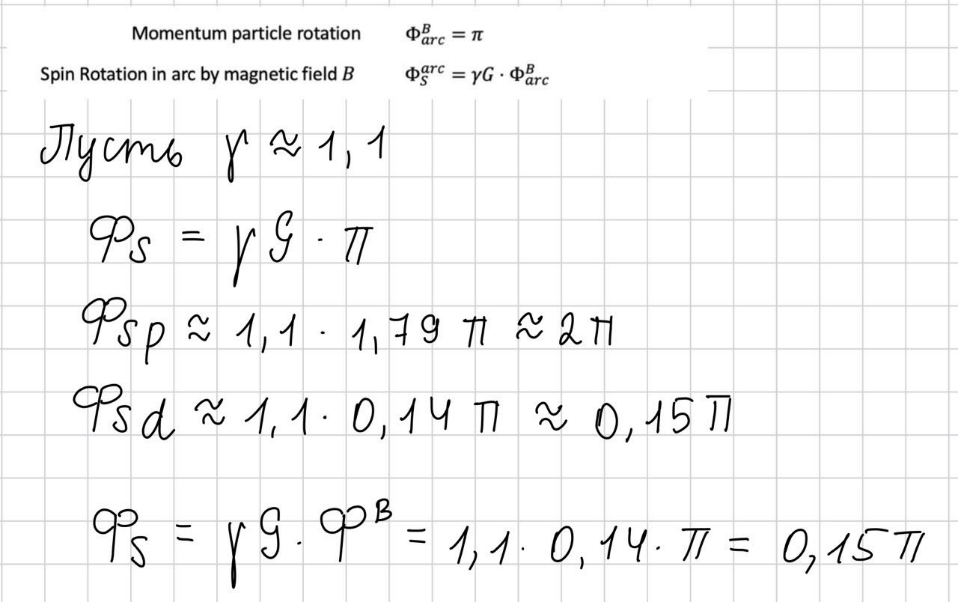 Momentum particle rotation Φ^B_arc = π
Spin Rotation in arc by magnetic field B Φ_S^arc = γG · Φ^B_arc
Пусть γ ≈ 1,1
Φs = γG · π
Φsp ≈ 1,1 · 1,79 π ≈ 2π
Φsd ≈ 1,1 · 0,14 π ≈ 0,15π
Φs = γG · Φ^B = 1,1 · 0,14 · π = 0,15π